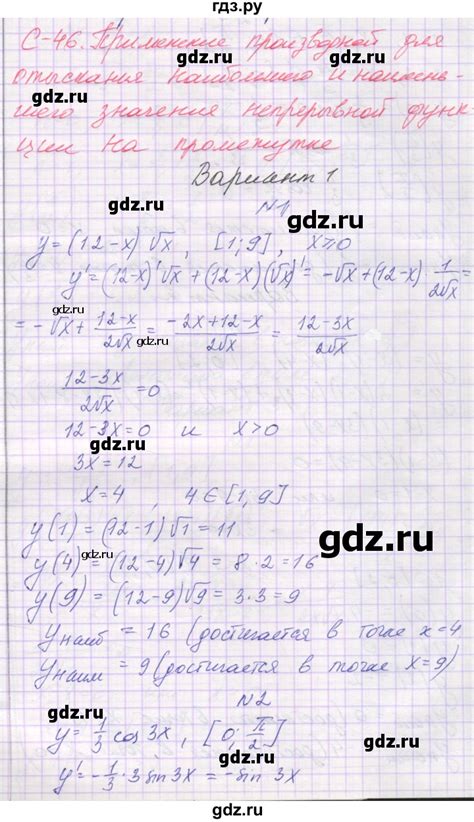 гдз.ру
С-46. Применение производной для
отыскания наибольшего и наимень-
шего значения непрерывной функ
ции на промежутке
gdz.ru
Вариант 1
gdz.ru
N1
y=(12-x)√x, [1;9], x≥0
y'=(12-x)'√x+(12-x)(√x)'=-√x+(12-x)·1/2√x=
gdz.ru
=-√x+12-x/2√x=-2x+12-x/2√x=12-3x/2√x
gdz.ru
12-3x/2√x=0
12-3x=0 и x>0
gdz.ru
3x=12
x=4, 4∈[1,9]
y(1)=(12-1)√1=11
gdz.ru
y(4)=(12-4)√4=8·2=16
gdz.ru
y(9)=(12-9)√9=3·3=9
gdz.ru
yнаиб=16 (достигается в точке x=4
yнаим=9(достигается в точке x=9)
gdz.ru
N2
gdz.ru
y=1/3 cos 3x, [0;π/2]
y'=-1/3·3sin3x=-sin 3x
gdz.ru
gdz.ru